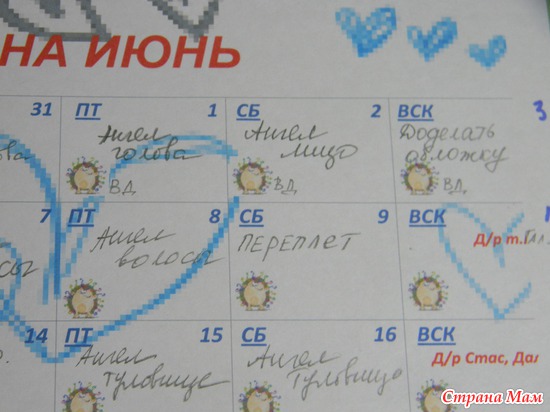 НА ИЮНЬ
31 ПТ 1 СБ 2 ВСК 3
Ангел Ангел Доделать
голова лицо обложку
ВД ВД ВД
7 ПТ 8 СБ 9 ВСК
Ангел ПЕРЕПЛЕТ Д/р т.
волосы
14 ПТ 15 СБ 16 ВСК
Ангел Ангел Д/р Стас,
туловище туловище
Страна Мам